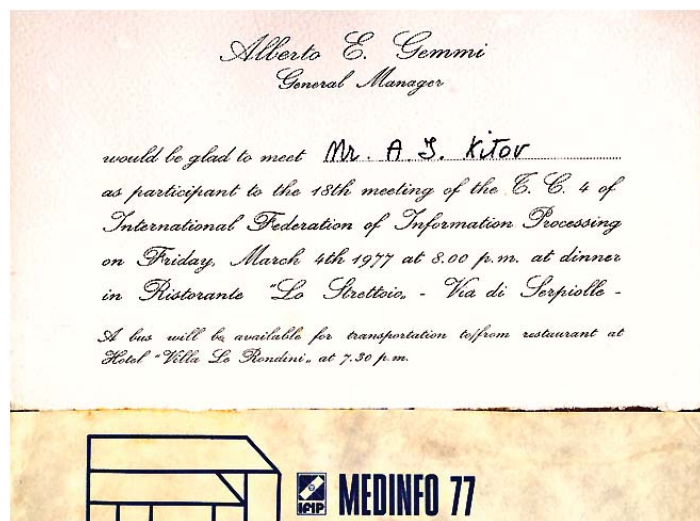 Alberto E. Gemmi
General Manager
would be glad to meet Mr. A I. Kitov
as participant to the 18th meeting of the T. C. 4 of
International Federation of Information Processing
on Friday, March 4th 1977 at 8.00 p.m. at dinner
in Ristorante "Lo Strettoio„ - Via di Serpiolle -
A bus will be available for transportation to/from restaurant at
Hotel "Villa Le Rondini„ at 7.30 p.m.
IFIP MEDINFO 77